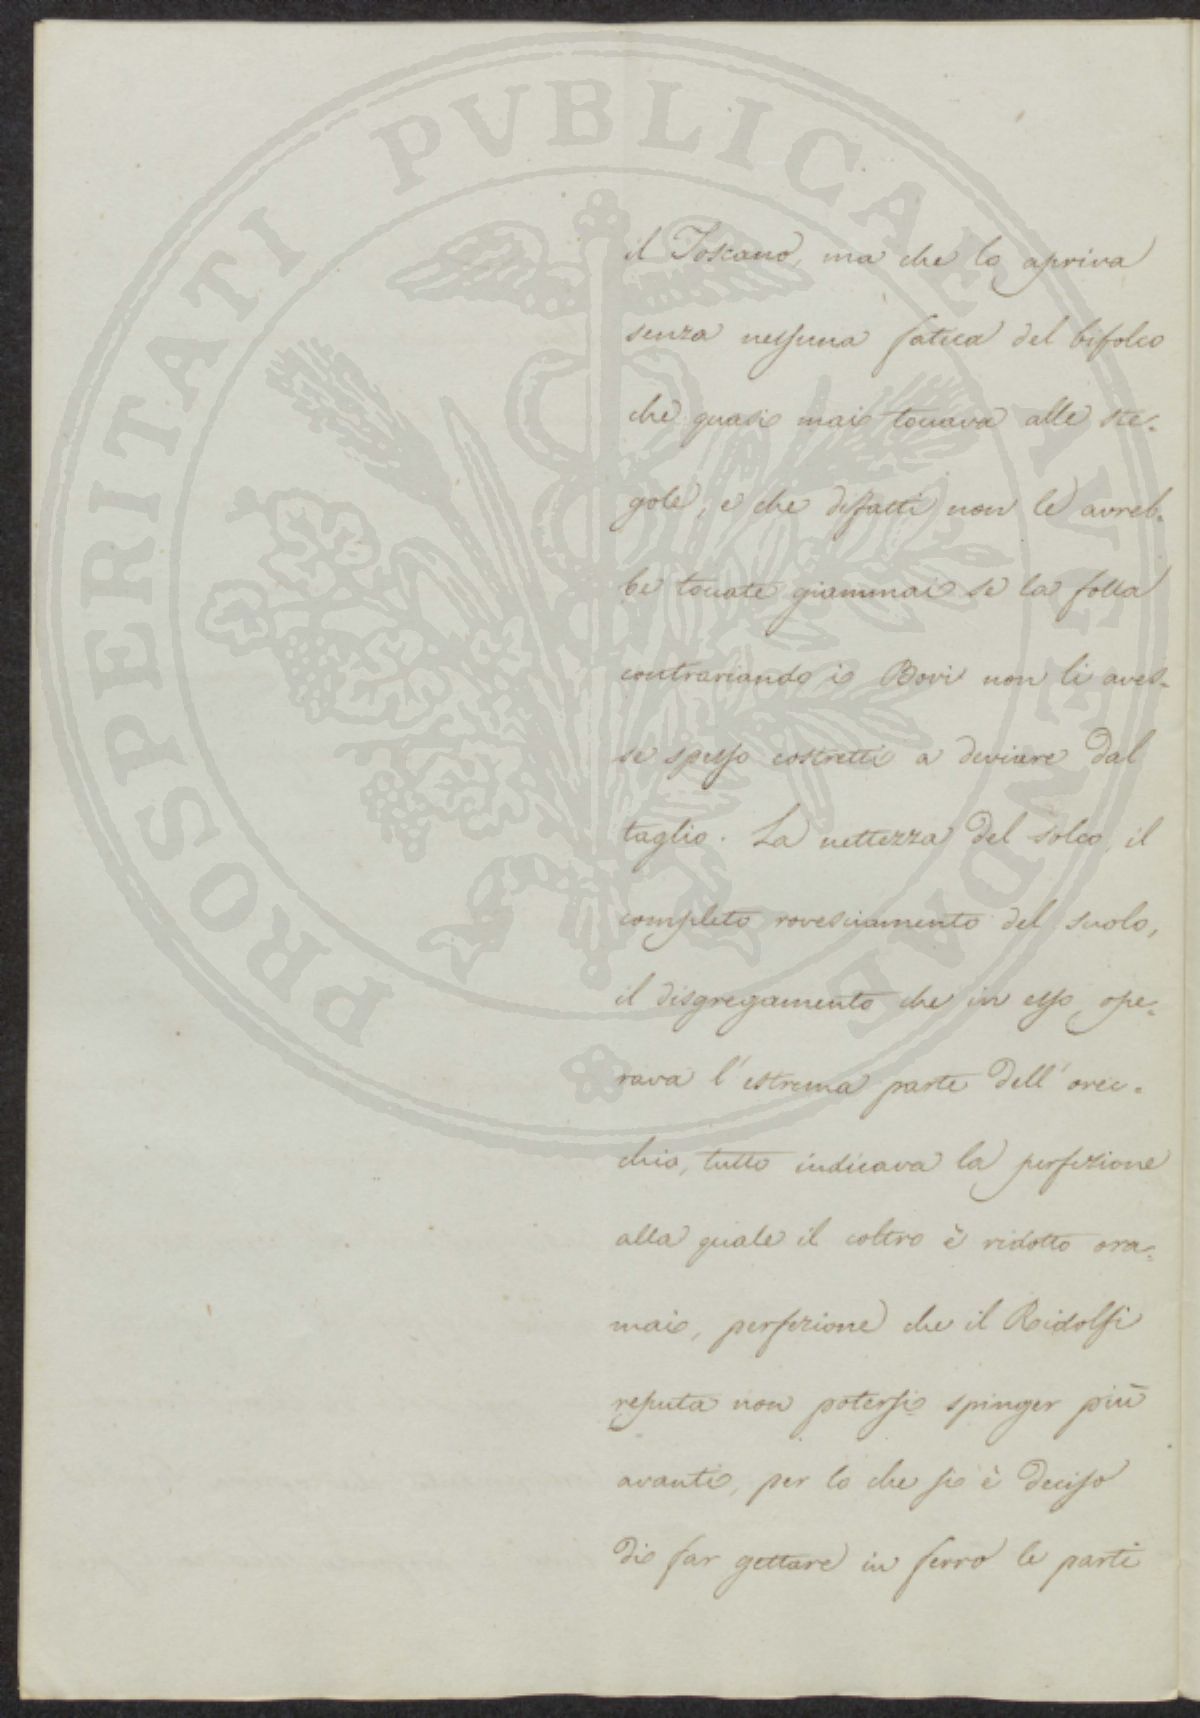 PROSPERITATI PVBLICAE AVGENDAE
il Toscano, ma che lo apriva
senza nessuna fatica del bifolco
che quasi mai toccava alle ste-
gole, e che difatti non le avreb-
be toccate giammai se la folla
contrariando i Bovi non li aves-
se spesso costretti a deviare dal
taglio. La nettezza del solco, il
completo rovesciamento del suolo,
il disgregamento che in esso ope-
rava l'estrema parte dell'orec-
chio, tutto indicava la perfezione
alla quale il coltro è ridotto ora-
mai, perfezione che il Ridolfi
reputa non potersi spinger più
avanti, per lo che si è deciso
di far gettare in ferro le parti